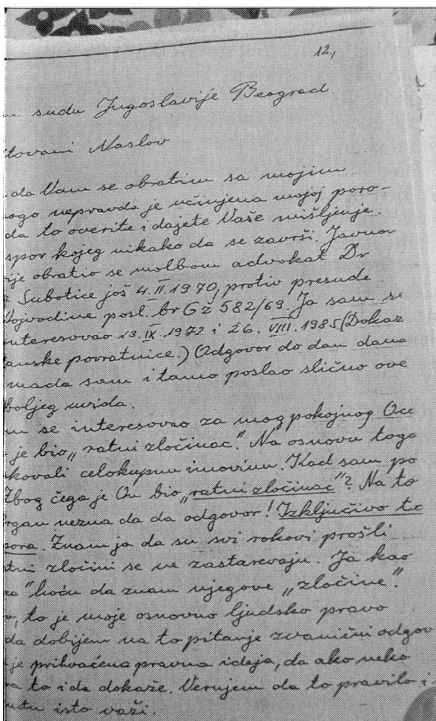 12,
sudu Jugoslavije Beograd
tovani Naslov
da Vam se obratim sa mojim
nogo nepravda je učinjena mojoj poro-
da to overite i dajete Vaše mišljenje.
spor kojeg nikako da se završi. Javnom
ije obratio se molbom advokat Dr
z Subotice još 4.II.1970, protiv presude
Vojvodine posl. br Gž 582/69. Ja sam se
nteresovao 13.IX.1972 i 26.VIII.1985 (Dokaz
anske povratnice.) Odgovor do dan dana
mada sam i tamo poslao slično ove
boljeg uvida.
m se interesovao za mog pokojnog Oca
je bio „ratni zločinac". Na osnovu toga
kovali celokupnu imovinu. Kad sam po
Zbog čega je On bio „ratni zločinac"? Na to
rgan nezna da da odgovor! Izključivo to
pora. Znam ja da su svi rokovi prošli
tni zločini se ne zastarevaju. Ja kao
ra" hoću da znam njegove „zločine".
to je moje osnovno ljudsko pravo
da dobijem na to pitanje zvanični odgov
je prihvaćena pravna ideja, da ako neko
to i da dokaže. Verujem da to pravilo i
utu isto važi.